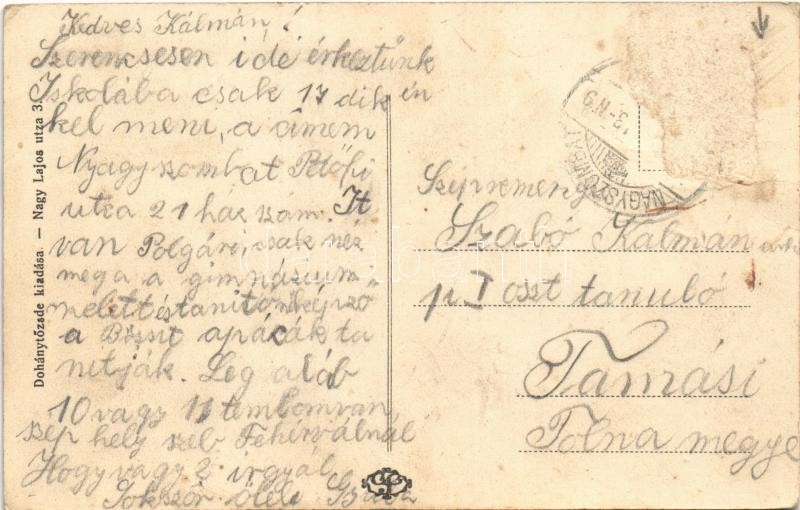 Kedves Kálmán!
Szerencsesen idé érkeztünk
Iskolába csak 17 dikén
kel meni, a címem
Nyagyszombat Petőfi
utca 21 ház szám. It
van Polgári, csak néz
mega a gimnázium
melett és tanitónképző
a apácák ta
nitják. Leg aláb
10 vagy 11 templom van,
szep hely szeb Fehérválnál
Hogy vagy? irgyál
Sokszor ölel
Dohánytőzsde kiadása. — Nagy Lajos utza 3.
NAGYSZOMBAT
Szabó Kálmán
I oszt tanuló
Tamási
Tolna megye